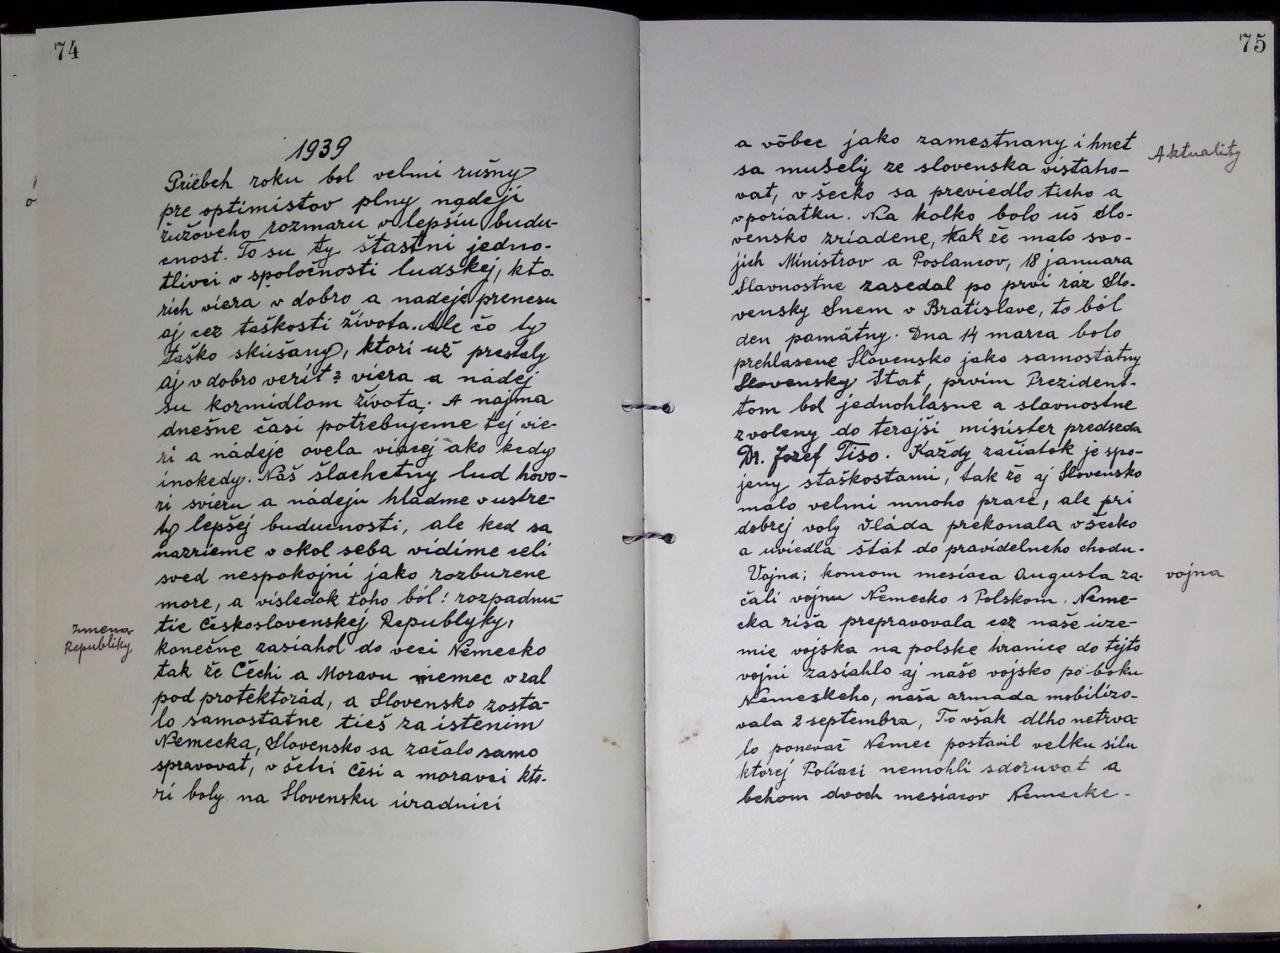 74
1939
Priebeh roku bol velmi rušny
pre optimistov plny nadeji
ružoveho rozmaru v lepšiu budu-
cnost. To su ty štastni jedno-
tlivci v spoločnosti ludskej, kto-
rich viera v dobro a nadeje prenesu
aj cez taškosti života. Ale čo ty
taško skušany, ktori už prestaly
aj v dobro verit? viera a nádej
su kormidlom života. A najma
dnešne časi potrebujeme tej vie-
ri a nádeje ovela viacej ako kedy
inokedy. Náš šlachetny lud hovo-
ri svieru a nádeju hladme v ustre-
ty lepšej buducnosti, ale ked sa
nazrieme v okol seba vidime celi
sved nespokojni jako rozburene
more, a visledok toho ból: rozpadnu-
tie Československej Republyky,
konečne zasiahol do veci Nemecko
tak že Čechi a Moravu niemec vzal
pod protektorád, a Slovensko zosta-
lo samostatne tieš za istenim
Nemecka, Slovensko sa začalo samo
spravovat, v šetci Česi a moravci kto-
ri boly na Slovensku úradnici
zmena
Republiky
75
a vôbec jako zamestnany i hnet
sa mušely ze slovenska vistaho-
vat, v šecko sa previedlo ticho a
v poriatku. Na kolko bolo uš Slo-
vensko zriadene, tak že malo svo-
jich Ministrov a Poslancov, 18 januara
Slavnostne zasedal po prvi ráz Slo-
vensky Snem v Bratislave, to ból
den pamätny. Dna 14 marca bolo
prehlasene Slovensko jako samostatny
Slovensky Štat, prvim Prezident-
tom bol jednohlasne a slavnostne
zvoleny do terajši minister predseda
Dr. Jozef Tiso. Každy začiatok je spo-
jeny staškostami, tak že aj Slovensko
malo velmi mnoho prace, ale pri
dobrej voly Vláda prekonala všecko
a uviedla štát do pravidelneho chodu.
Vojna; koncom mesiaca Augusta za-
čali vojnu Nemecko s Polskom. Neme-
cka riša prepravovala cez naše úze-
mie vojska na polske hranice do tejto
vojni zasiahlo aj naše vojsko po boku
Nemeskeho, naša armada mobilizo-
vala 2 septembra, To však dlho netrva-
lo ponevač Nemec postavil velku silu
ktorej Poliaci nemohli sdoruvat a
behom dvoch mesiacov Nemecke-
Aktuality
vojna